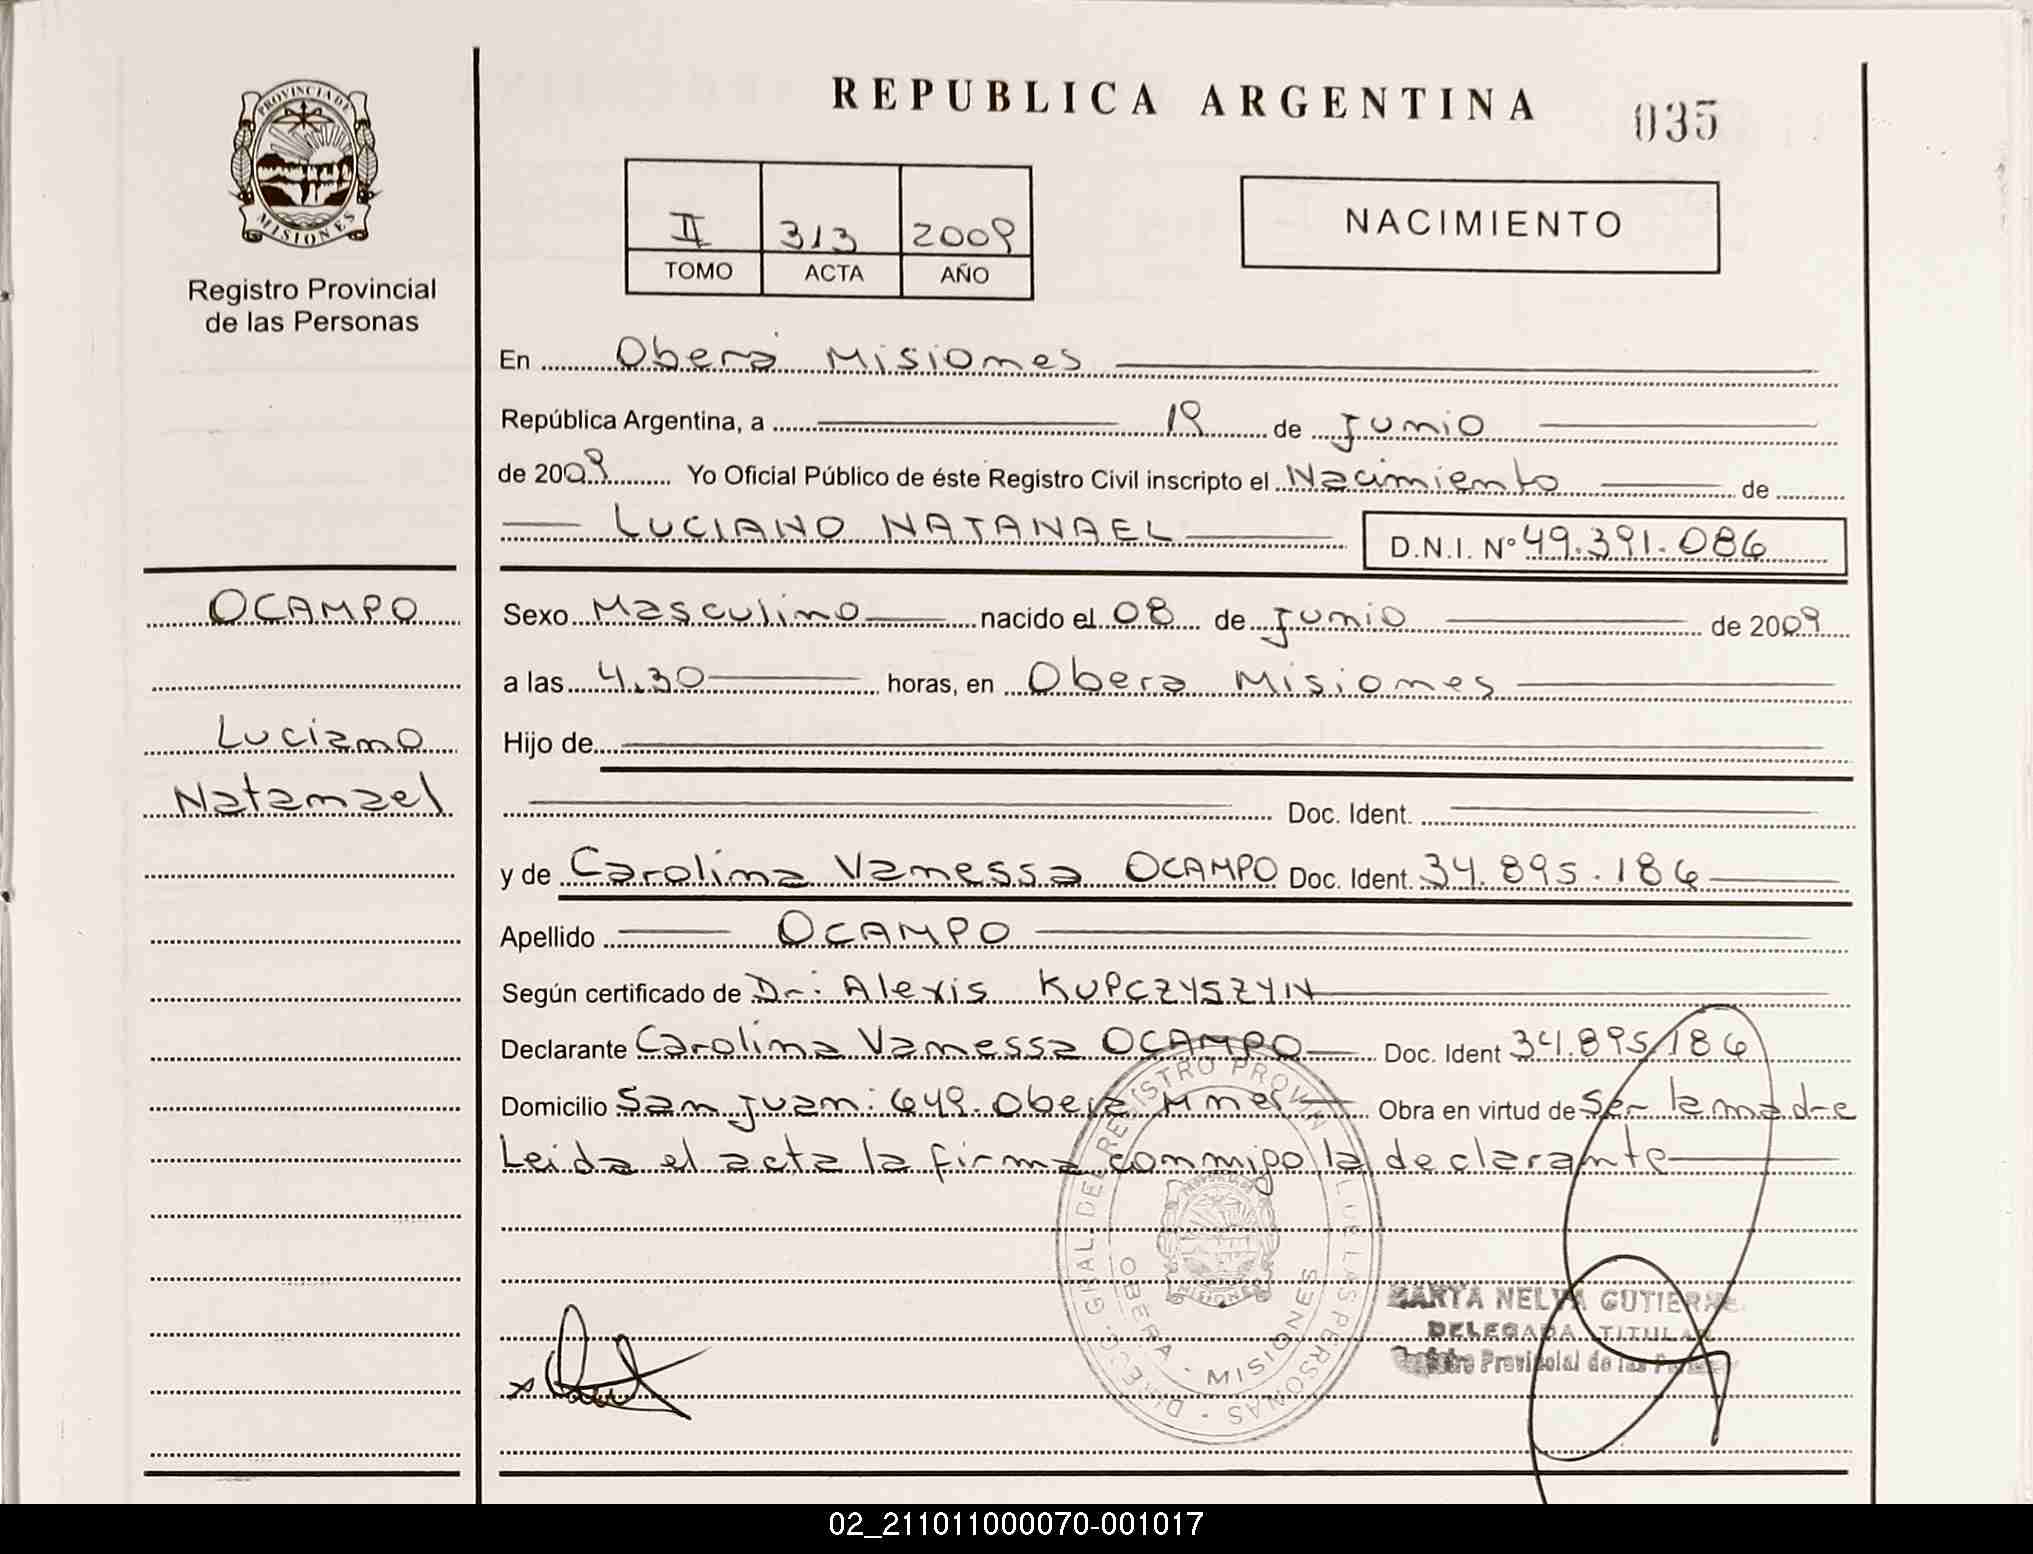 REPUBLICA ARGENTINA
035
PROVINCIA DE
MISIONES
Registro Provincial
de las Personas
II 313 2009
TOMO ACTA AÑO
NACIMIENTO
En Oberá Misiones
República Argentina, a 19 de Junio
de 2009 Yo Oficial Público de éste Registro Civil inscripto el Nacimiento de
LUCIANO NATANAEL D.N.I. Nº 49.391.086
OCAMPO
Luciano
Natanael
Sexo Masculino nacido el 08 de Junio de 2009
a las 4.30 horas, en Obera Misiones
Hijo de
Doc. Ident.
y de Carolina Vanessa OCAMPO Doc. Ident. 34.895.186
Apellido OCAMPO
Según certificado de Dr: Alexis KUPCZYSZYN
Declarante Carolina Vanessa OCAMPO Doc. Ident 34.895.186
Domicilio San Juan: 649. Obera Mnes Obra en virtud de Ser la madre
Leida el acta la firma conmigo la declarante
DIRECC. GRAL. DEL REGISTRO PROVINCIAL DE LAS PERSONAS
OBERA - MISIONES
MISIONES
MARTA NELVA GUTIERREZ
DELEGADA TITULAR
Registro Provincial de las
x
02_211011000070-001017